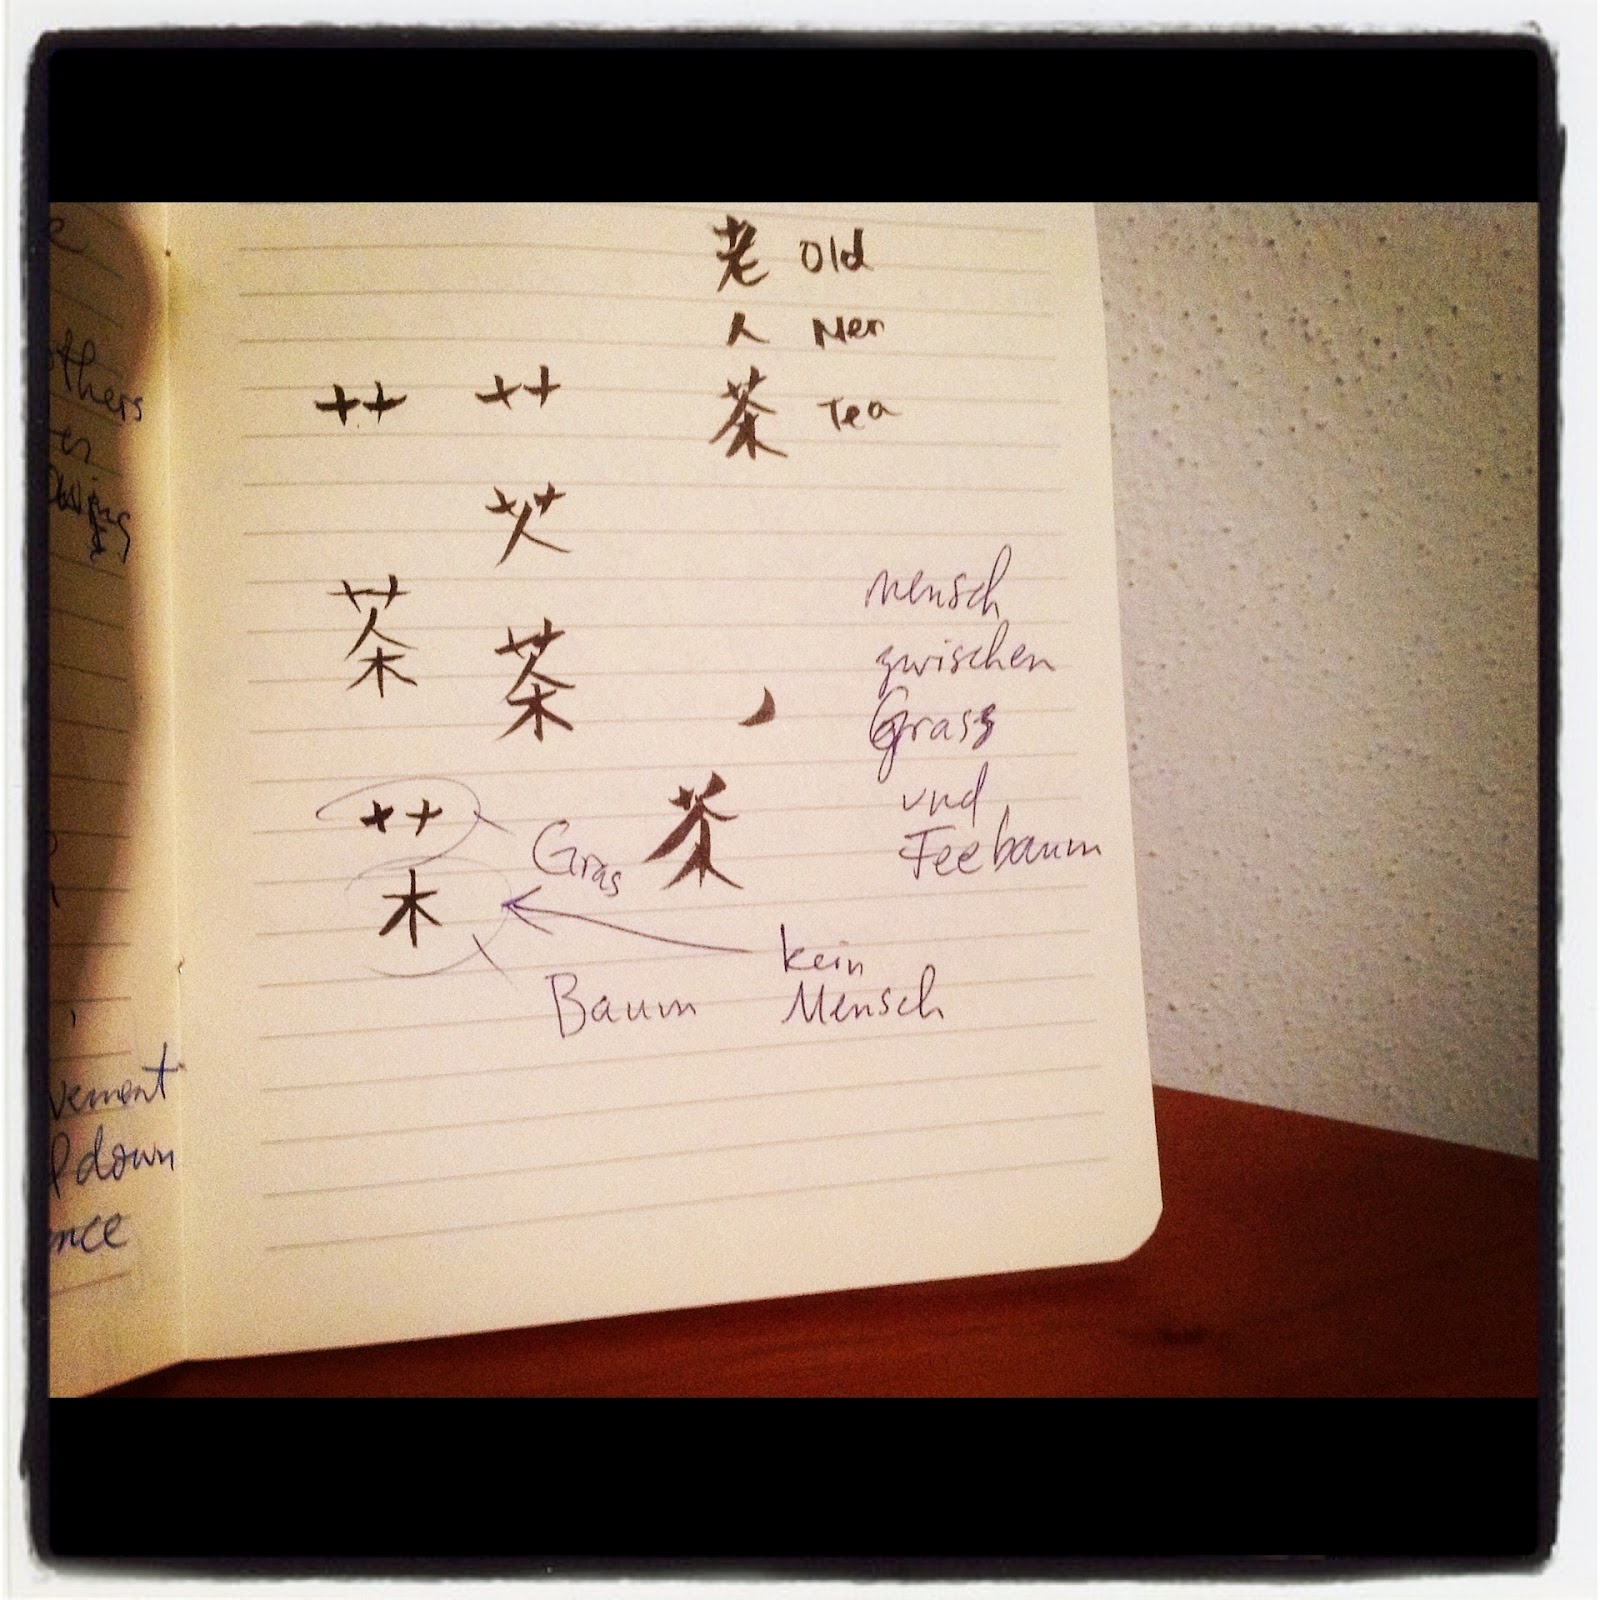 老 Old
人 Men
茶 Tea
艹 艹
艾
茶 茶
mensch
zwischen
Grass
und
Teebaum
艹 Gras
茶
木
Baum
kein
Mensch
others
vement
down
ence